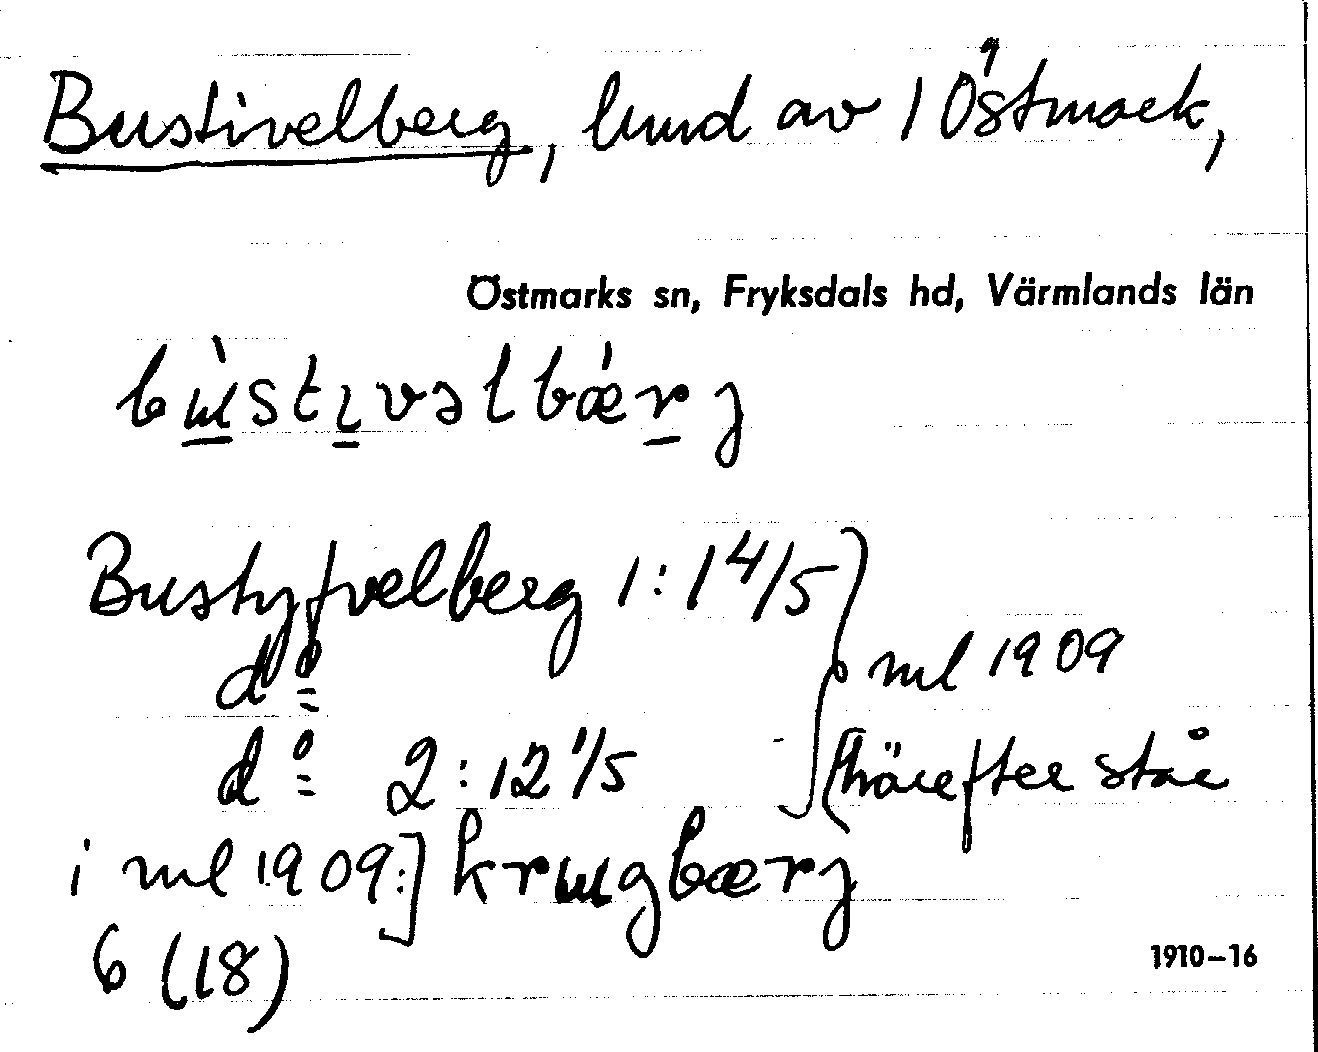 Bustivelberg, lund av 1 Östmark,
Östmarks sn, Fryksdals hd, Värmlands län
bɯ̀stɪvəlbǽrj
Bustyfvelberg 1:1 4/5
dº
dº 2:12 1/5
ml 1909
[härefter står
i ml 1909:] krɯgbærj
6 (18)
1910–16